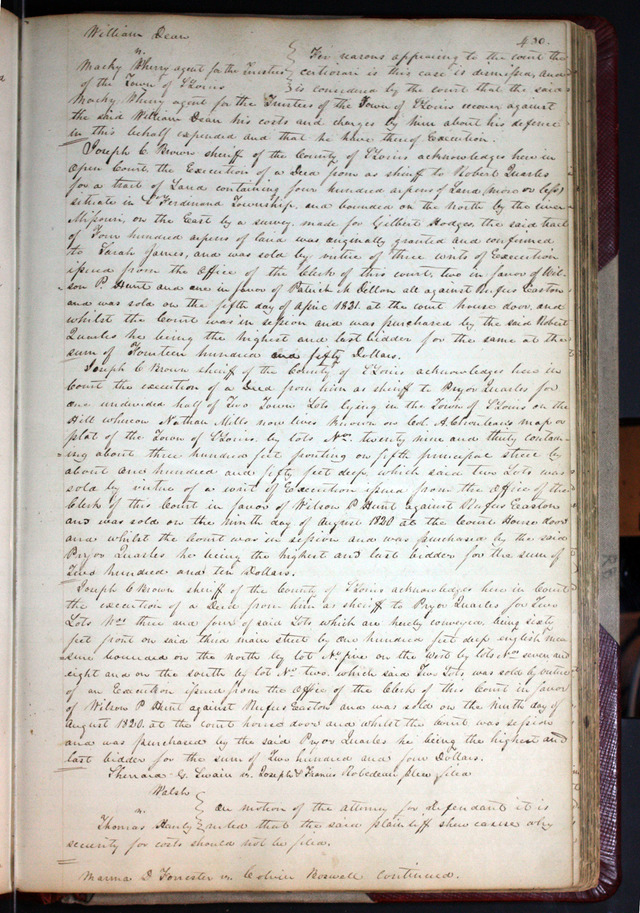 William Dean
430.
vs.
Macky Wherry agent for the Trustees
of the Town of St Louis
For reasons appearing to the court the
certiorari is this case is dismissed and
is considered by the court that the said
Macky Wherry agent for the Trustees of the Town of St Louis recover against
the said William Dean his costs and charges by him about his defence
in this behalf expended and that he have thereof Execution.
Joseph C. Brown sheriff of the County of St Louis acknowledges here in
Open Court, the Execution of a Deed from as sheriff to Robert Quarles
for a tract of Land containing four hundred arpens of Land (more or less)
situate in St Ferdinand Township, and bounded on the North by the river
Missouri, on the East by a survey, made for Gilbert Hodges, the said tract
of Four hundred arpens of land was originally granted and confirmed
to Sarah James, and was sold by virtue of three writs of Execution
issued from the Office of the Clerk of this court, two in favor of Wil-
son P. Hunt and one in favor of Patrick M. Dillon all against Rufus Easton
and was sold on the fifth day of April 1821. at the court house door, and
whilst the Court was in session and was purchased by the said Robert
Quarles he being the highest and last bidder for the same at the
sum of Fourteen hundred and fifty Dollars.
Joseph C Brown sheriff of the County of St Louis acknowledges here in
Court the execution of a Deed from him as sheriff to Pryor Quarles for
one undivided half of Two Town Lots lying in the Town of St Louis on the
Hill whereon Nathan Mills now lives known on Col. A. Chouteaus map or
plat of the Town of St Louis. by lots Nos. twenty nine and thirty contain-
ing about three hundred feet fronting on fifth principal street by
about one hundred and fifty feet deep which said two Lots was
sold by virtue of a writ of Execution issued from the Office of the
Clerk of this Court in favor of Wilson P Hunt against Rufus Easton
and was sold on the ninth day of August 1820 at the Court House door
and whilst the Court was in session and was purchased by the said
Pryor Quarles he being the highest and last bidder for the sum of
Two hundred and ten Dollars.
Joseph C Brown sheriff of the County of St Louis acknowledges here in Court
the execution of a Deed from him as sheriff to Pryor Quarles for Two
Lots Nos three and four of said Lots which are hereby conveyed, being sixty
feet front on said third main street by one hundred feet deep english mea
sure bounded on the north by lot No five on the West by lots Nos seven and
eight and on the south by lot No. two. which said Two Lots was sold by virtue
of an Execution issued from the Office of the Clerk of this Court in favor
of Wilson P Hunt against Rufus Easton and was sold on the ninth day of
August 1820. at the court house door and whilst the court was session
and was purchased by the said Pryor Quarles he being the highest and
last bidder for the sum of Two hundred and four Dollars.
Sherrard G. Swain vs. Joseph & Francis Robedeau plea filed
Walsh
vs.
Thomas Hanly
On motion of the attorney for defendant it is
ruled that the said plaintiff shew cause why
security for costs should not be filed.
Marma D Forrester vs. Colvin Boswell continued.